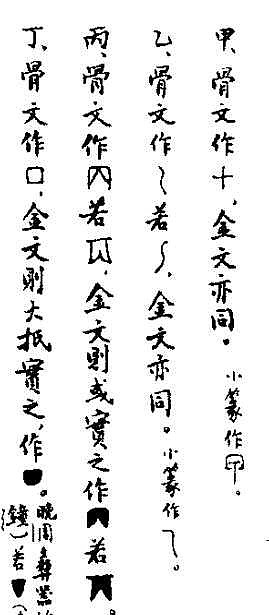 甲、骨文作十，金文亦同。小篆作。
乙、骨文作若，金文亦同。小篆作。
丙、骨文作若，金文則或實之作若。
丁、骨文作口，金文則大抵實之，作。晚周彝器
鐘）若